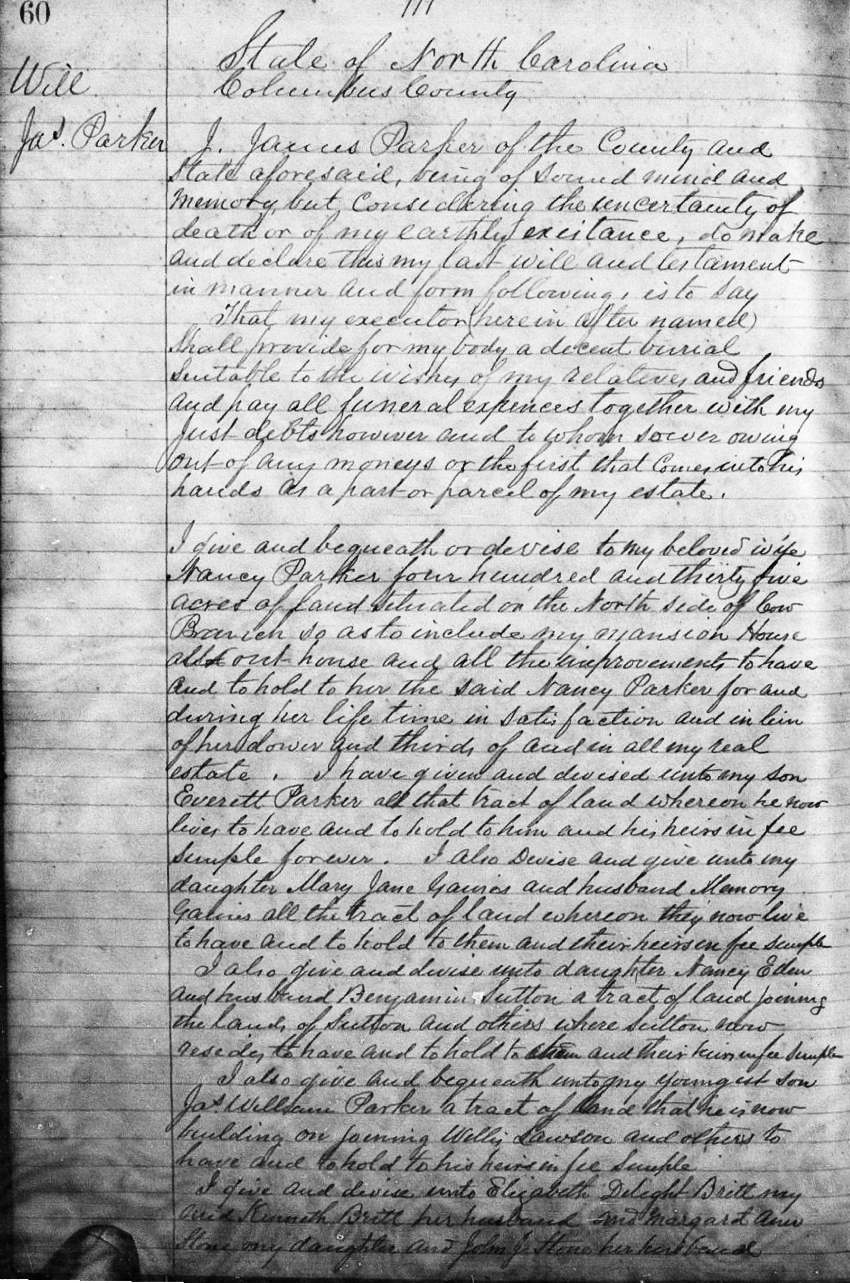 60
State of North Carolina
Columbus County
Will
Jas. Parker
I. James Parker of the County and
State aforesaid, being of Sound mind and
Memory, but Considering the uncertainty of
death or of my earthly excistance, do make
and declare this my last will and testament
in manner and form following, is to Say
That my executor (herein after named)
Shall provide for my body a decent burial
Suitable to the wishes of my relatives and friends
And pay all funeral expences together with my
Just debts however and to whom soever owing
out of any moneys or the first that Comes into his
hands as a part or parcel of my estate.
I give and bequeath or devise to my beloved wife
Nancy Parker four hundred and thirty five
acres of land situated on the North side of Cow
Branch so as to include my mansion House
all out house and all the improvements to have
and to hold to her the said Nancy Parker for and
during her life time in satisfaction and in lieu
of her dower and thirds of and in all my real
estate. I have given and devised unto my son
Everett Parker all that tract of land whereon he now
lives to have and to hold to him and his heirs in fee
Simple forever. I also Devise and give unto my
daughter Mary Jane Gaines and husband Memory
Gaines all the tract of land whereon they now live
to have and to hold to them and their heirs in fee simple
I also give and devise unto daughter Nancy Eden
and husband Benjamin Sutton a tract of land joining
the lands of Sutton and others where sutton now
resides to have and to hold to them and their heirs in fee Simple
I also give and bequeath unto my youngest son
Jas William Parker a tract of land that he is now
building on joining Willis Lawson and others to
have and to hold to his heirs in fee Simple
I give and devise unto Elizabeth Delight Britt my
and Kenneth Britt her husband and Margaret Ann
Stone my daughter and John J. Stone her husband